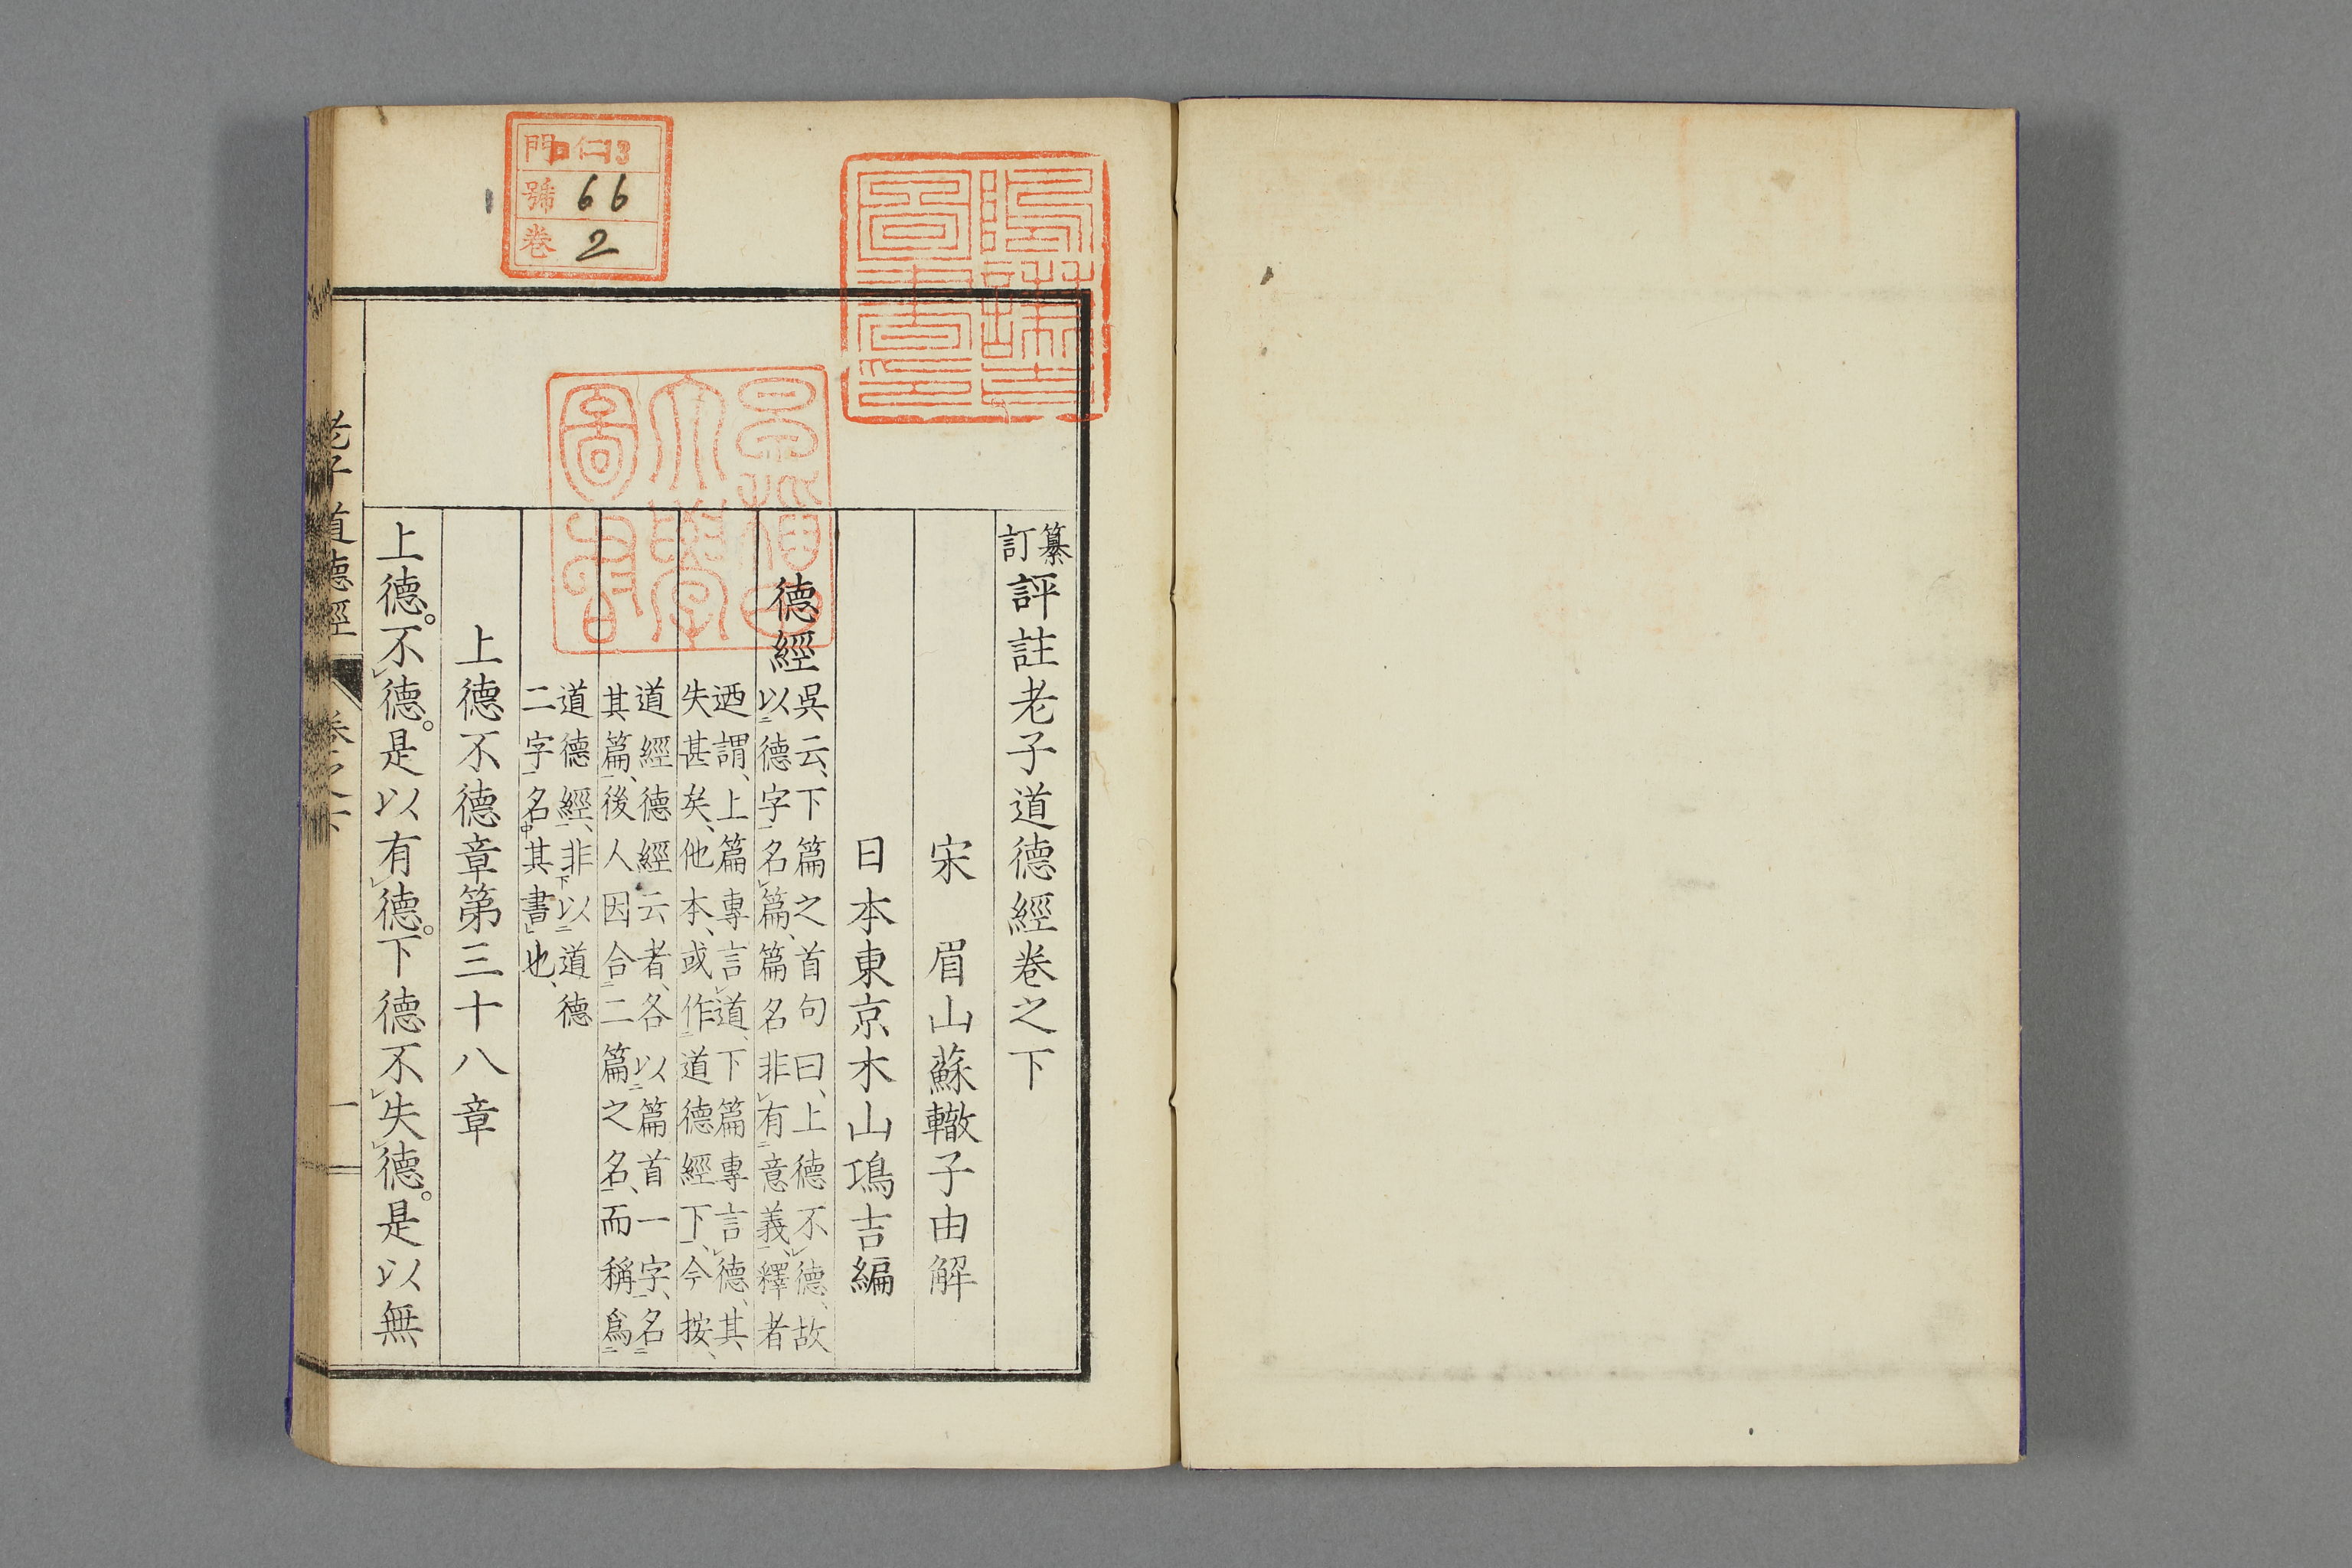 纂訂評註老子道德經卷之下
宋 眉山蘇轍子由解
日本東京木山鴻吉編
德經
吳云、下篇之首句曰、上德不德、故
以德字名篇、篇名非有意義、釋者
迺謂、上篇專言道、下篇專言德、其
失甚矣、他本、或作道德經下、今按、
道經德經云者、各以篇首一字、名
其篇、後人因合二篇之名、而稱爲
道德經、非以道德
二字名其書也、
上德不德章第三十八章
上德。不德。是以有德。下德不失德。是以無
老子道德經 卷之下 一
門 仁 13
號 66
卷 2
早稲田大學圖書